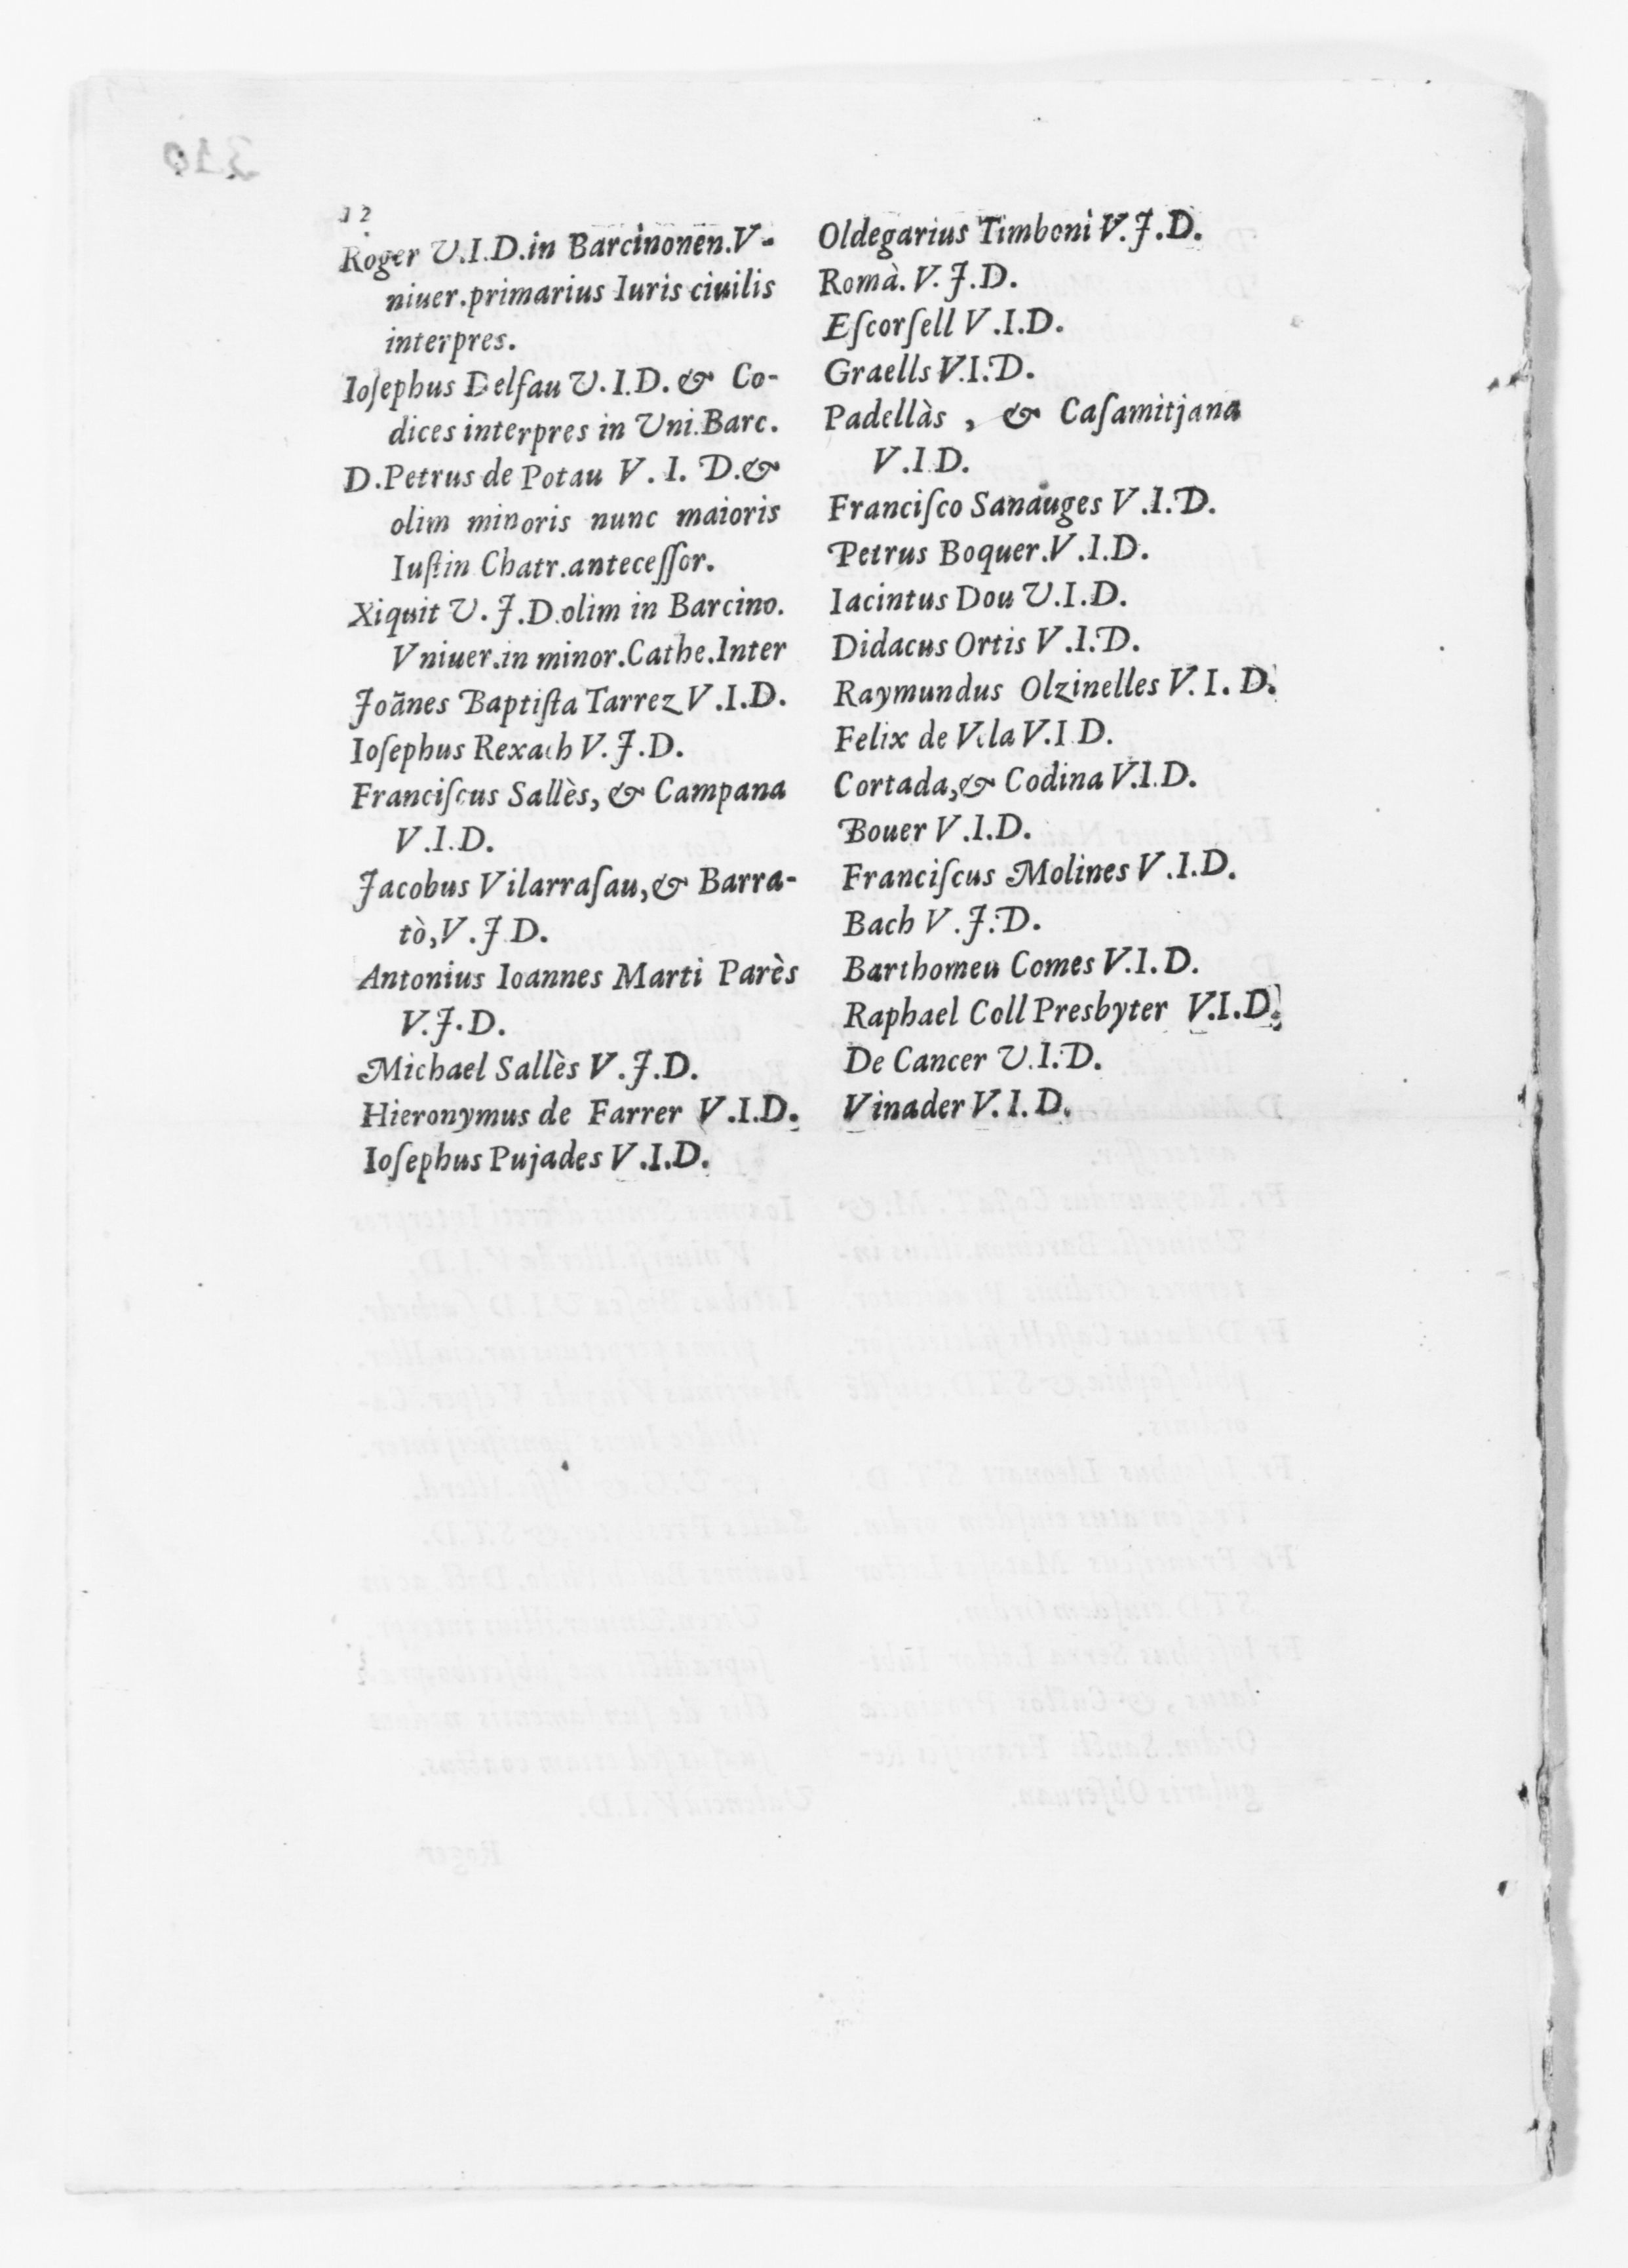 12
Roger V.I.D.in Barcinonen.V-
niuer.primarius Iuris ciuilis
interpres.
Ioſephus Delfau V.I.D.& Co-
dices interpres in Uni.Barc.
D.Petrus de Potau V.I.D.&
olim minoris nunc maioris
Iuſtin Chatr.anteceſſor.
Xiquit V.J.D.olim in Barcino.
Vniuer.in minor.Cathe.Inter
Joānes Baptiſta Tarrez V.I.D.
Ioſephus Rexach V.J.D.
Franciſcus Sallès, & Campana
V.I.D.
Jacobus Vilarraſau,& Barra-
tò,V.J.D.
Antonius Ioannes Marti Parès
V.J.D.
Michael Sallès V.J.D.
Hieronymus de Farrer V.I.D.
Ioſephus Pujades V.I.D.
Oldegarius Timboni V.J.D.
Romà.V.J.D.
Eſcorſell V.I.D.
Graells V.I.D.
Padellàs , & Caſamitjana
V.I.D.
Franciſco Sanauges V.I.D.
Petrus Boquer.V.I.D.
Iacintus Dou V.I.D.
Didacus Ortis V.I.D.
Raymundus Olzinelles V.I.D.
Felix de V.I.D.
Cortada,& Codina V.I.D.
Bouer V.I.D.
Franciſcus Molines V.I.D.
Bach V.J.D.
Barthomeu Comes V.I.D.
Raphael Coll Presbyter V.I.D.
De Cancer V.I.D.
Vinader V.I.D.